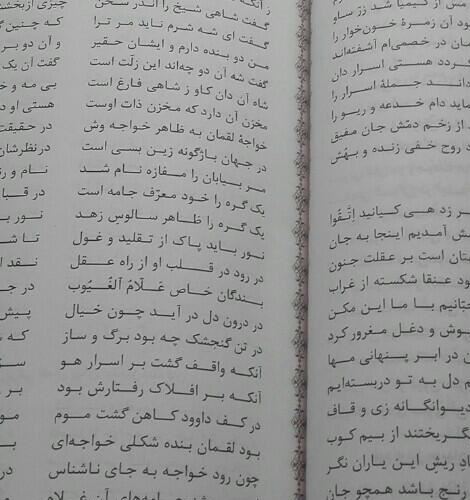 مس از کیمیا شد زر ساو
آن زمرهٔ خون‌خوار را
در خصمی‌ام آشفته‌اند
گردد هستی اسرار دان
جملهٔ اسرار را
دام خدعه و ریو را
از زخم دمّش جان مفیق
روح خفی زنده و بهُش
بر زد هی کیانید اِتَّقُوا
آمدیم اینجا به جان
است بر عقلت جنون
عنقا شکسته از غراب
با ما این مکن
و دغل مغرور کرد
در ابر پنهانی مها
دل به تو دربسته‌ایم
دیوانگانه زی و قاف
بگریختند از بیم کوب
ریش این یاران نگر
رنج باشد همچو جان
گفت شاهی شیخ را اندر سخن چیزی از
گفت ای شه شرم ناید مر ترا که چنین
من دو بنده دارم و ایشان حقیر و آن دو بر
گفت شه آن دو چه‌اند این زلّت است گفت آن یک
شاه آن دان کاو ز شاهی فارغ است بی مه و
مخزن آن دارد که مخزن ذات اوست هستی او
خواجهٔ لقمان به ظاهر خواجه وش در حقیقت
در جهان باژگونه زین بسی است در نظرشان
مر بیابان را مفازه نام شد نام و
یک گره را خود معرّف جامه است در
یک گره را ظاهر سالوس زهد نور
نور باید پاک از تقلید و غول تا
در رود در قلب او از راه عقل نقد
بندگان خاص عَلّامُ ٱلْغُیُوب در
در درون دل در آید چون خیال پیش
در تن گنجشک چه بود برگ و ساز که
آنکه واقف گشت بر اسرار هو
آنکه بر افلاک رفتارش بود بر
در کف داوود کاهن گشت موم
بود لقمان بنده شکلی خواجه‌ای
چون رود خواجه به جای ناشناس در